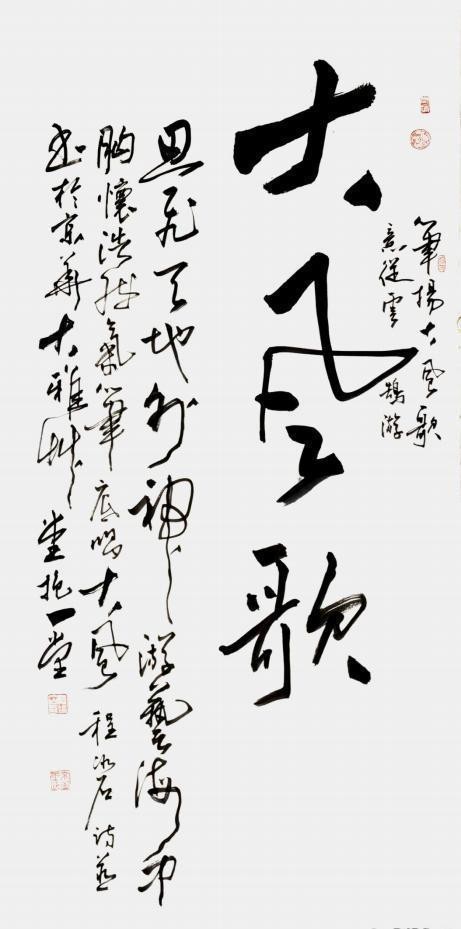 筆揚大風歌
意從雲鵠游
大风歌
思飛天地外神游藝海中
胸懷浩然氣筆底唱大風 程冰石詩並
書於京華大雅草堂抱一堂